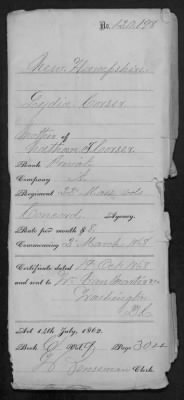 No. 120,198
New Hampshire
Lydia Corser
Mother of
Nathan T. Corser
Rank Private
Company
Regiment 22d Mass. Vols
Concord Agency.
Rate per month $ 8.
Commencing 2d March 1868
Certificate dated 19 Oct 1868
and sent to
Washington
D.C.
Act 14th July, 1862.
Book Vol. Page 302
Clerk.